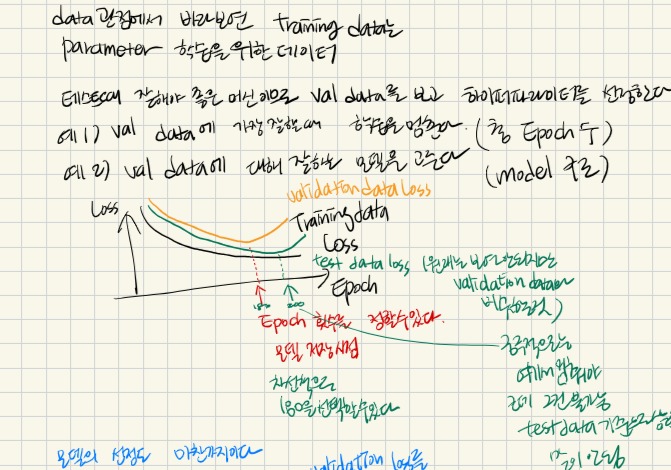 data 관점에서 바라보면 Training data는
Parameter 학습을 위한 데이터
테스트에 잘해야 좋은 머신이므로 val data를 보고 하이퍼파라미터를 선정한다
예1) val data에 가장 잘할때 학습을 멈춘다. (총 Epoch 수)
예2) val data에 대해 잘하는 모델을 고른다 (model 구조)
validation data loss
Loss
Training data
Loss
test data loss (원래는 보면 안되지만
validation data와
비슷할것)
Epoch
200
Epoch 횟수를 정할수있다.
모델 저장시점
차선책으로
선택할수있다
궁극적으로는
여기서 멈춰야
그건 불가능
test data
모델의 선정도 마찬가지이다
validation loss를